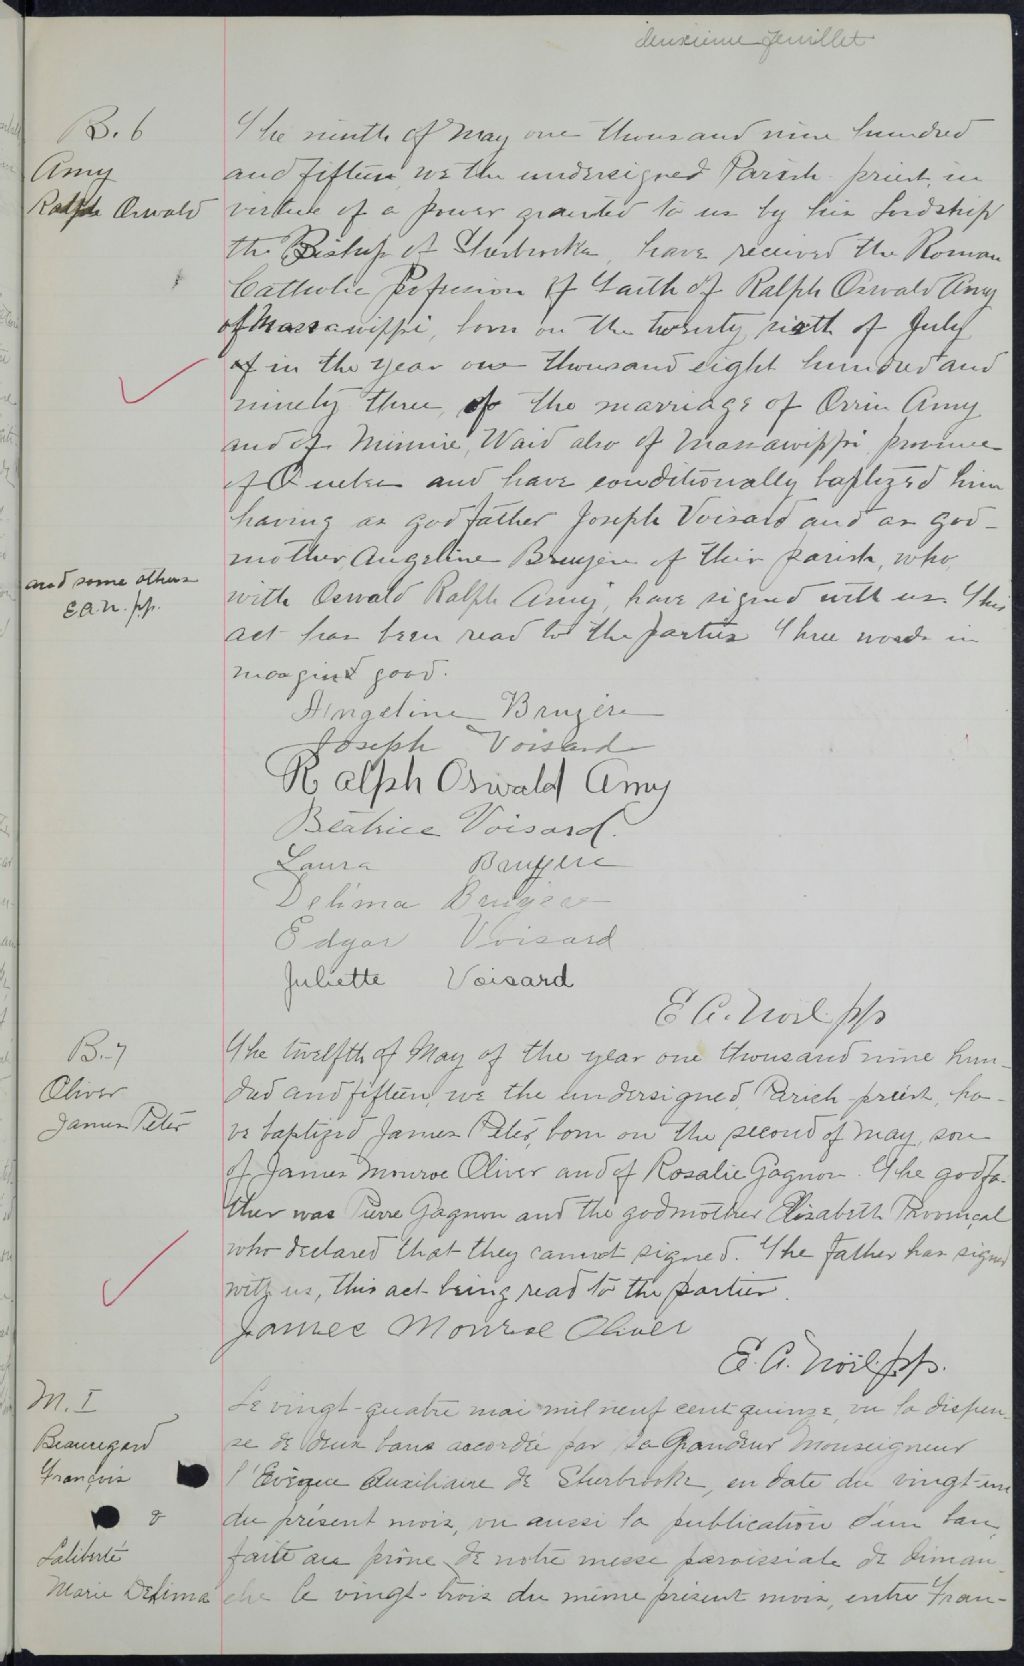 deuxieme feuillet
B. 6
Amy
Ralph Oswald
The ninth of May one thousand nine hundred
and fifteen, we the undersigned Parish priest, in
virtue of a power granted to us by his Lordship
the Bishop of Sherbrooke, have received the Roman
Catholic Profession of Faith of Ralph Oswald Amy
of Massawippi, born on the twenty sixth of July
of in the year one thousand eight hundred and
ninety three, of the marriage of Orrin Amy
and of Minnie Waid also of Massawippi province
of Quebec and have conditionally baptized him
having as godfather Joseph Voisard and as god-
mother Angeline Bruyère of this parish, who,
and some others
E.A.N. p.p.
with Oswald Ralph Amy, have signed with us. This
act has been read to the parties Three words in
margin good.
Angeline Bruyère
Joseph Voisard
Ralph Oswald Amy
Béatrice Voisard.
Laura Bruyere
Delima Bruyere
Edgar Voisard
Juliette Voisard
E A. Noël p.p
B.-7
Oliver
James Peter
The twelfth of May of the year one thousand nine hun-
dred and fifteen, we the undersigned, Parish priest, ha-
ve baptized James Peter, born on the second of May, son
of James Monroe Oliver and of Rosalie Gagnon. The godfa-
ther was Pierre Gagnon and the godmother Elisabeth Provençal
who declared that they cannot signed. The father has signed
with us, this act being read to the parties.
James Monroe Oliver
E. A. Noël. p.p.
M. I
Beauregard
François
&
Laliberté
Marie Delima
Le vingt-quatre mai mil neuf cent quinze, vu la dispen-
se de deux bans accordée par Sa Grandeur Monseigneur
l'Evêque Auxiliaire de Sherbrooke, en date du vingt-un
du présent mois, vu aussi la publication d'un ban,
faite au prône de notre messe paroissiale de diman-
che le vingt-trois du même présent mois, entre Fran-